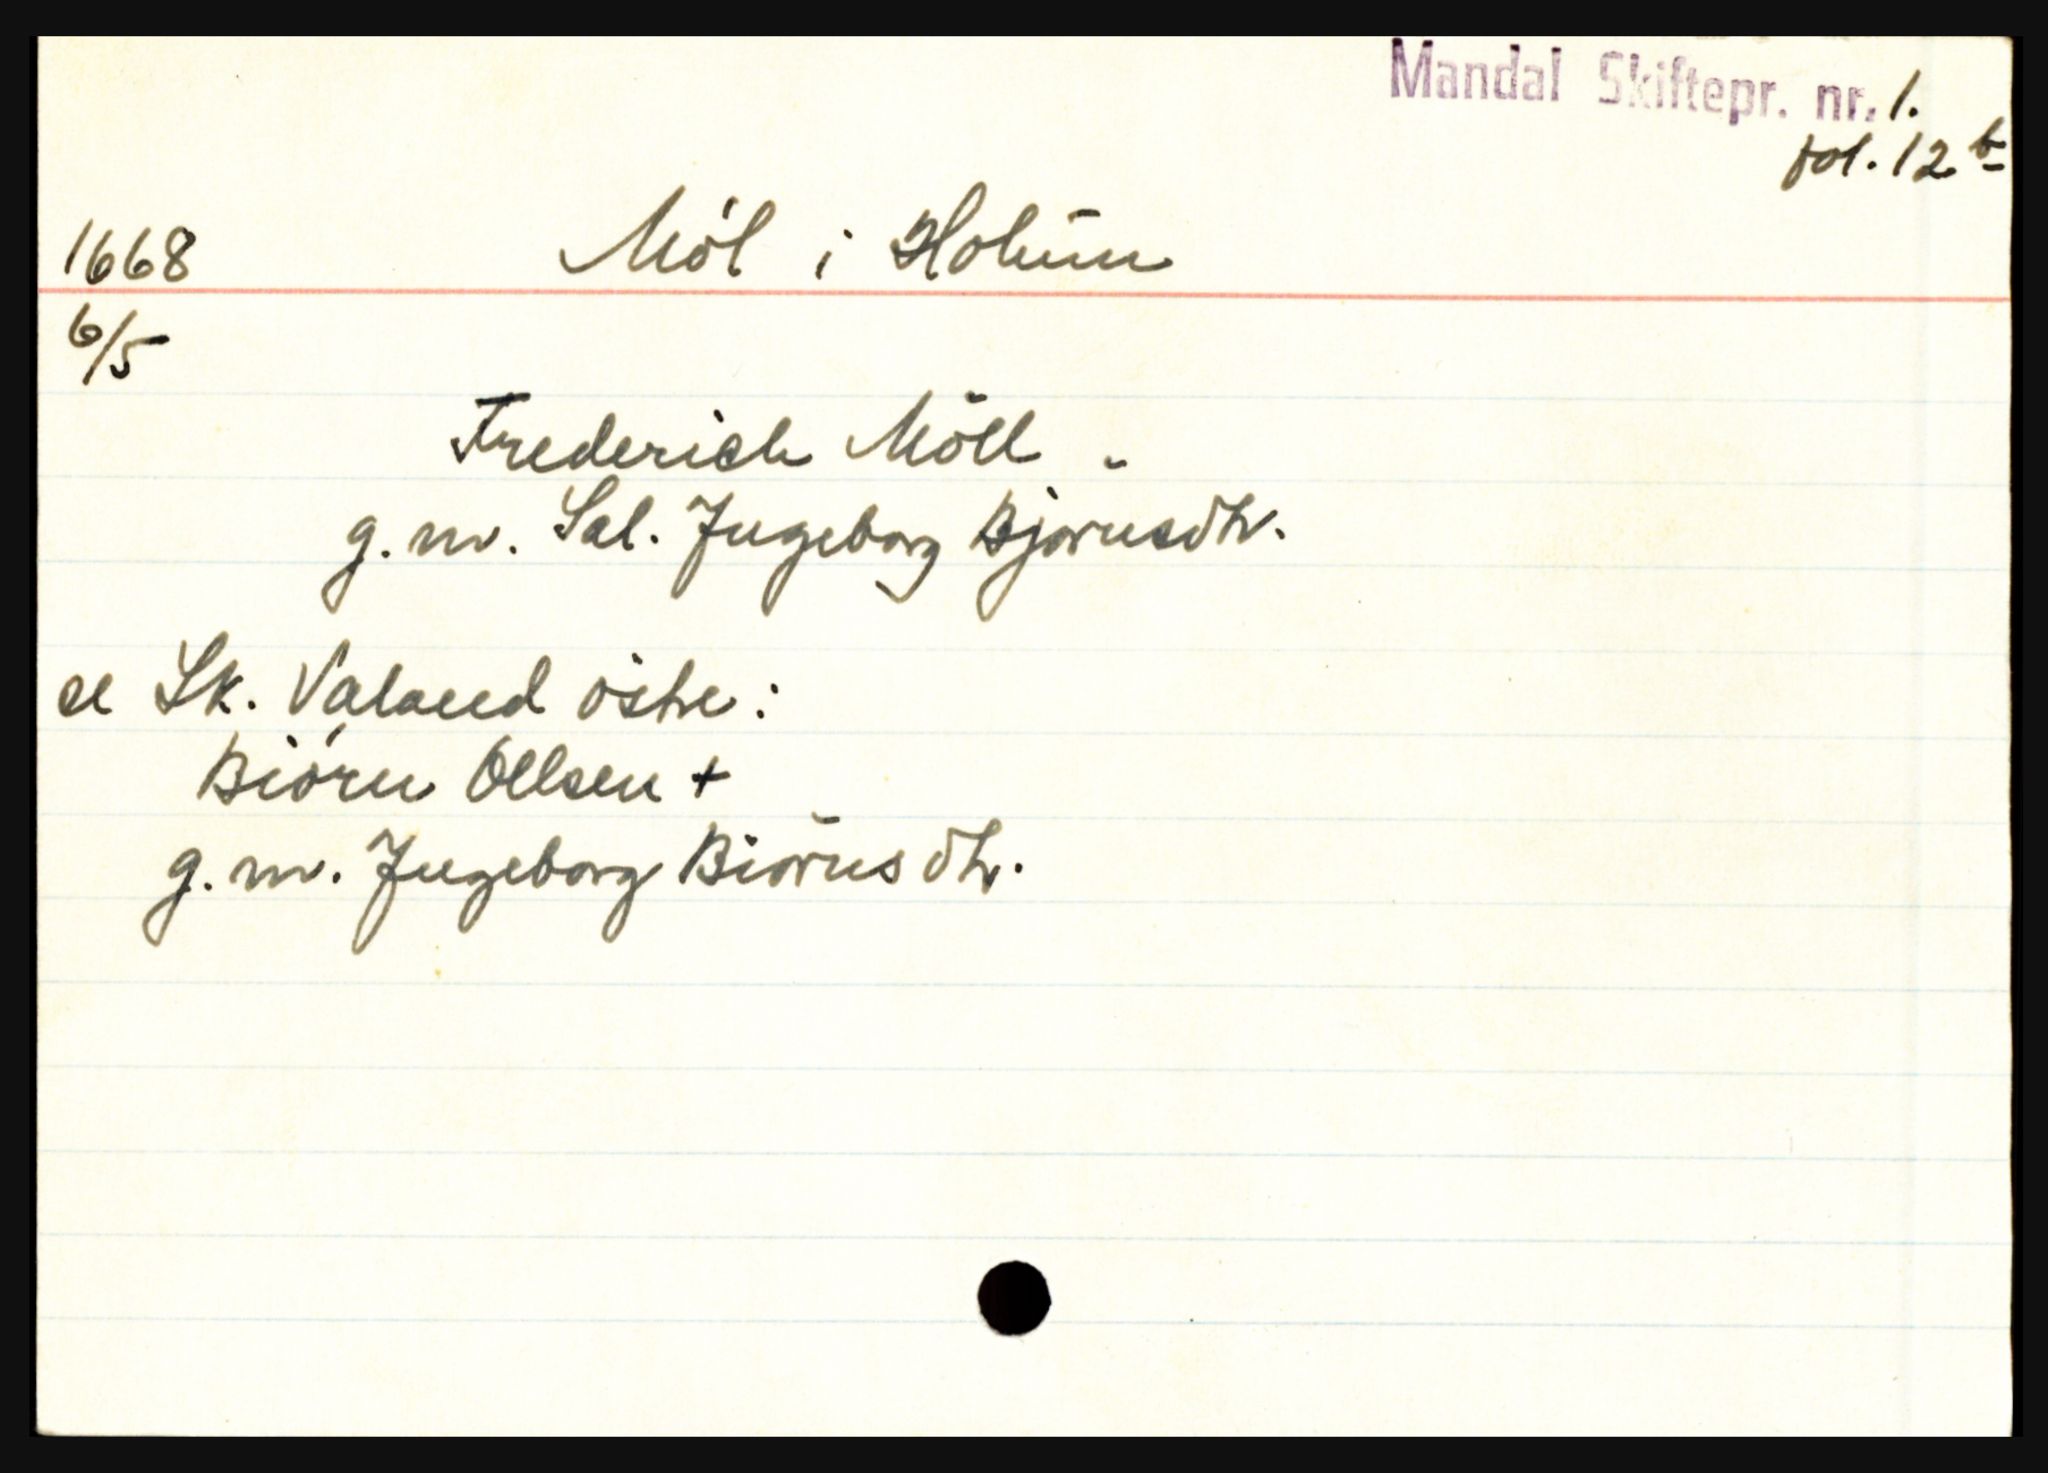 Mandal Skiftepr. nr. 1.
fol. 12 b
1668 Möl i Holum
6/5
Frederich Möll -
g. m. Sal. Ingeborg Bjørnsdtr.
se Sk. Valand östre:
Biörn Ollsen +
g. m. Ingeborg Biørnsdtr.